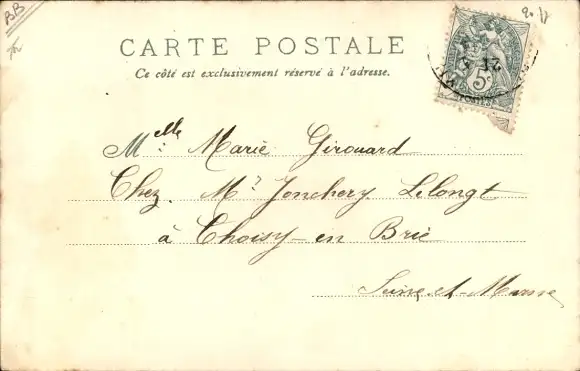 BB
CARTE POSTALE
Ce côté est exclusivement réservé à l'adresse.
21
5
Melle Marie Girouard
Chez Mr Jonchery Lelongt
à Choisy-en Brie
Seine-et-Marne